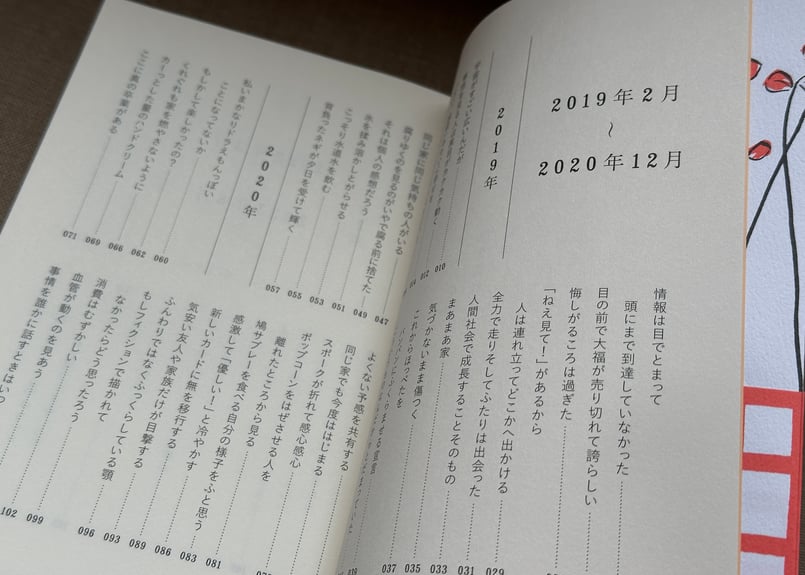 2019年2月
〜
2020年12月
2019年
010
012
情報は目でとまって
頭にまで到達していなかった
目の前で大福が売り切れて誇らしい
悔しがるころは過ぎた
「ねえ見て！」があるから
人は連れ立ってどこかへ出かける
全力で走りそしてふたりは出会った
029
人間社会で成長することそのもの
031
まあまあ家
033
気づかないまま傷つく
035
これからほっぺたを
037
039
同じ家に同じ気持ちの人がいる
047
腐りゆくのを見るのがいやで腐る前に捨てた
049
それは個人の感想だろう
051
氷を揉み溶かしとがらせる
053
こっそり水道水を飲む
055
背負ったネギが夕日を受けて輝く
057
2020年
私いまかなりドラえもんっぽい
ことになってないか
060
もしかして楽しかったの？
062
くれぐれも家を燃やさないように
066
カーっとした髪のハンドクリーム
069
ここに真の卒業がある
071
よくない予感を共有する
同じ家でも今度ははじまる
スポークが折れて感心感心
ポップコーンをはぜさせる人を
離れたところから見る
鳩サブレーを食べる自分の様子をふと思う
感激して「優しい！」と冷やかす
081
新しいカードに無を移行する
083
気安い友人や家族だけが目撃する
086
ふんわりではなくふっくらしている顎
089
もしフィクションで描かれて
なかったらどう思ったろう
093
消費はむずかしい
096
血管が動くのを見あう
099
事情を誰かに話すときはいつ
102